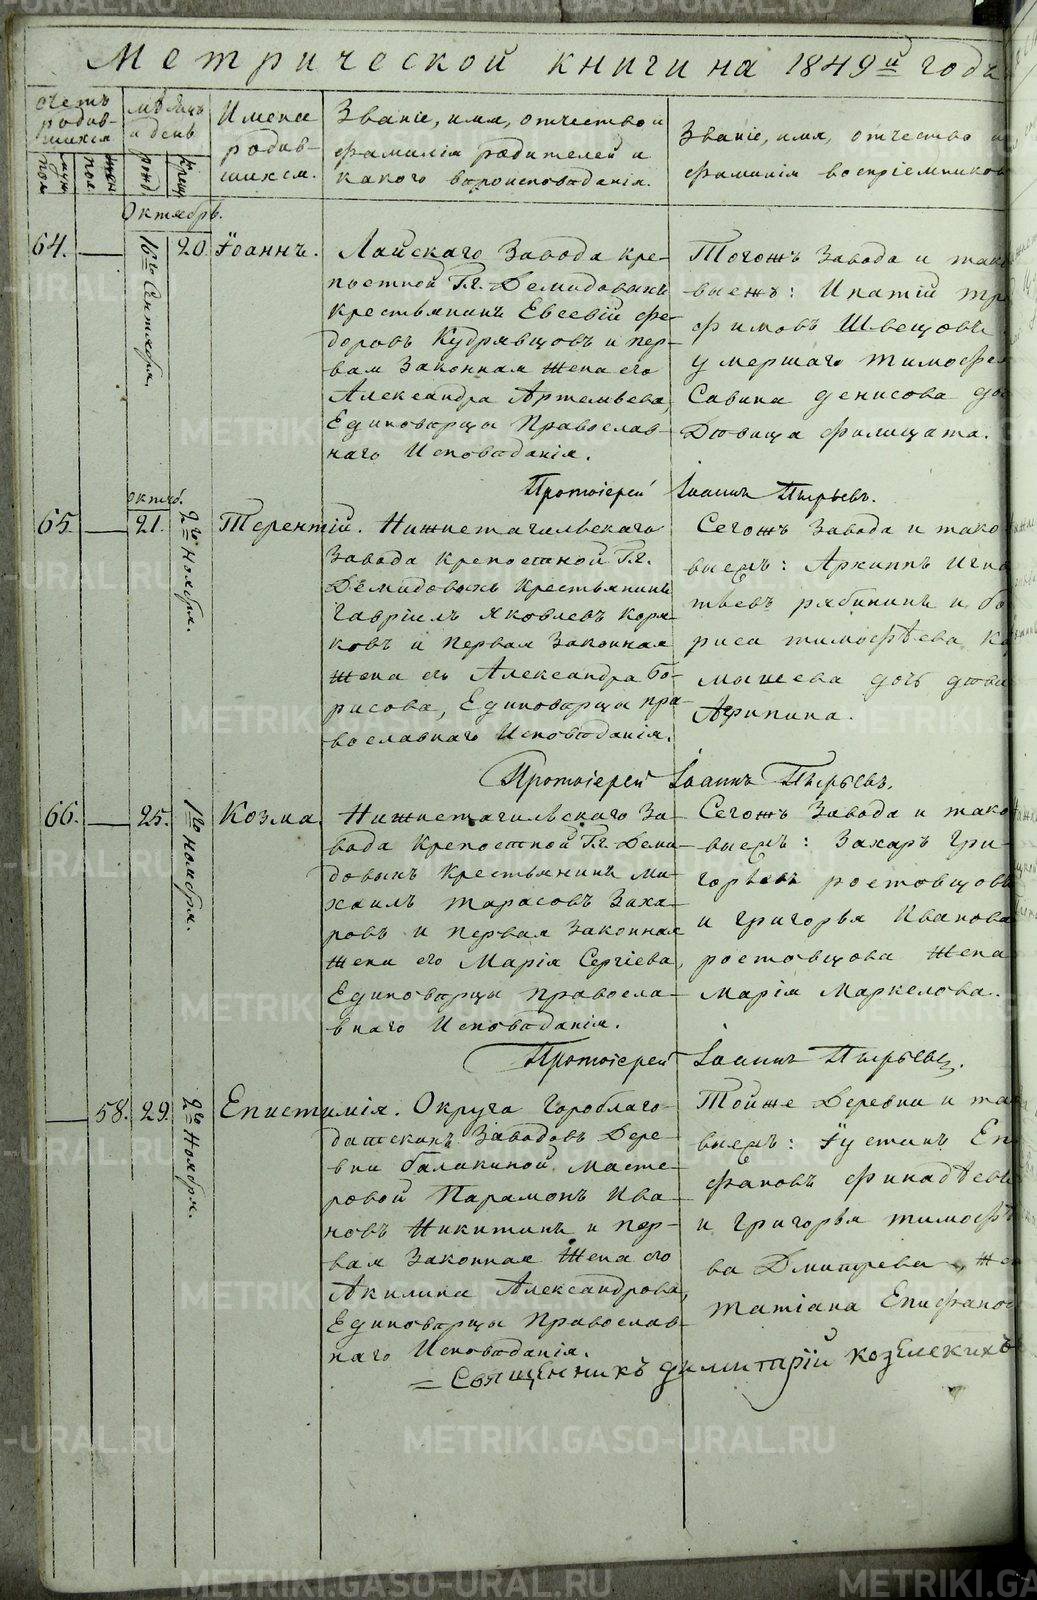 Метрической книги на 1849й годъ
Счетъ родившихся
мѣсяцъ и день
Имена родившихся.
Званіе, имя, отчество и
фамилія родителей и
какого вѣроисповѣданія.
Званіе, имя, отчество и
фамилія воспріемниковъ
муж. пол.
жен. пол.
рожд
крещ
Октябрь.
64.
16го Сентября.
20.
Іоаннъ.
Лайскаго Завода кре-
постной Г.г. Демидовыхъ
крестьянинъ Евсевій Фе-
доровъ Кудрявцовъ и пер-
вая Законная жена его
Александра Артемьева,
Единовѣрцы Православ-
наго Исповѣданія.
Тогожъ Завода и тако
выежъ: Ипатій Тро
фимовъ Швецовъ
умершаго Тимофея
Савина Денисова до
Дѣвица Филицата.
Протоіерей Іоаннъ Пырьевъ.
октяб.
65
21.
2го Ноября.
Терентій.
Нижнетагильскаго
Завода Крепостной Г.г.
Демидовыхъ Крестьянинъ
Гавріилъ Яковлевъ Коря-
ковъ и первая Законная
жена его Александра Бо-
рисова, Единовѣрцы пра-
вославнаго Исповѣданія.
Сегожъ Завода и тако
выежъ: Архипъ Игна
тьевъ рябининъ и Бо
риса тимофѣева Ка
мышева дочь дѣви
Агрипина.
Протоіерей Іоаннъ Пырьевъ.
66.
25.
1го Ноября.
Козма.
Нижнетагильскаго За-
вода Крепостной Г.г. Деми-
довыхъ Крестьянинъ Ми-
хаилъ Тарасовъ Заха-
ровъ и первая Законная
жена его Марія Сергіева,
Единоварцы правосла-
внаго Исповѣданія.
Сегожъ Завода и тако
выежъ: Захаръ Гри-
горьевъ ростовщовъ
и Григорья Иванова
ростовщова жена
Марія Маркелова.
Протоіерей Іоаннъ Пырьевъ.
58.
29.
2го Ноября.
Епистимія.
Округа Гороблаго-
датскихъ Заводовъ Дере-
вни балакиной Масте-
ровой Парамонъ Ива-
новъ Никитинъ и пер-
вая Законная жена его
Акилина Александрова,
Единоварцы Православ-
наго Исповѣданія.
Тойже Деревни и та
выежъ: Іустинъ Епи
фановъ Финадѣевъ
и Григорья тимофѣ
ва Дмитрева же
татіана Епифанов
Священникъ Димитрій Козелскихъ
METRIKI.GASO-URAL.RU